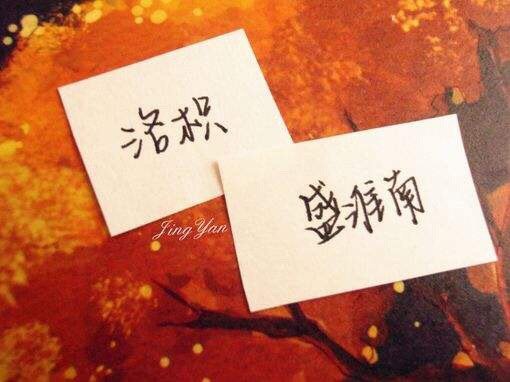 洛枳
盛淮南
Jing Yan